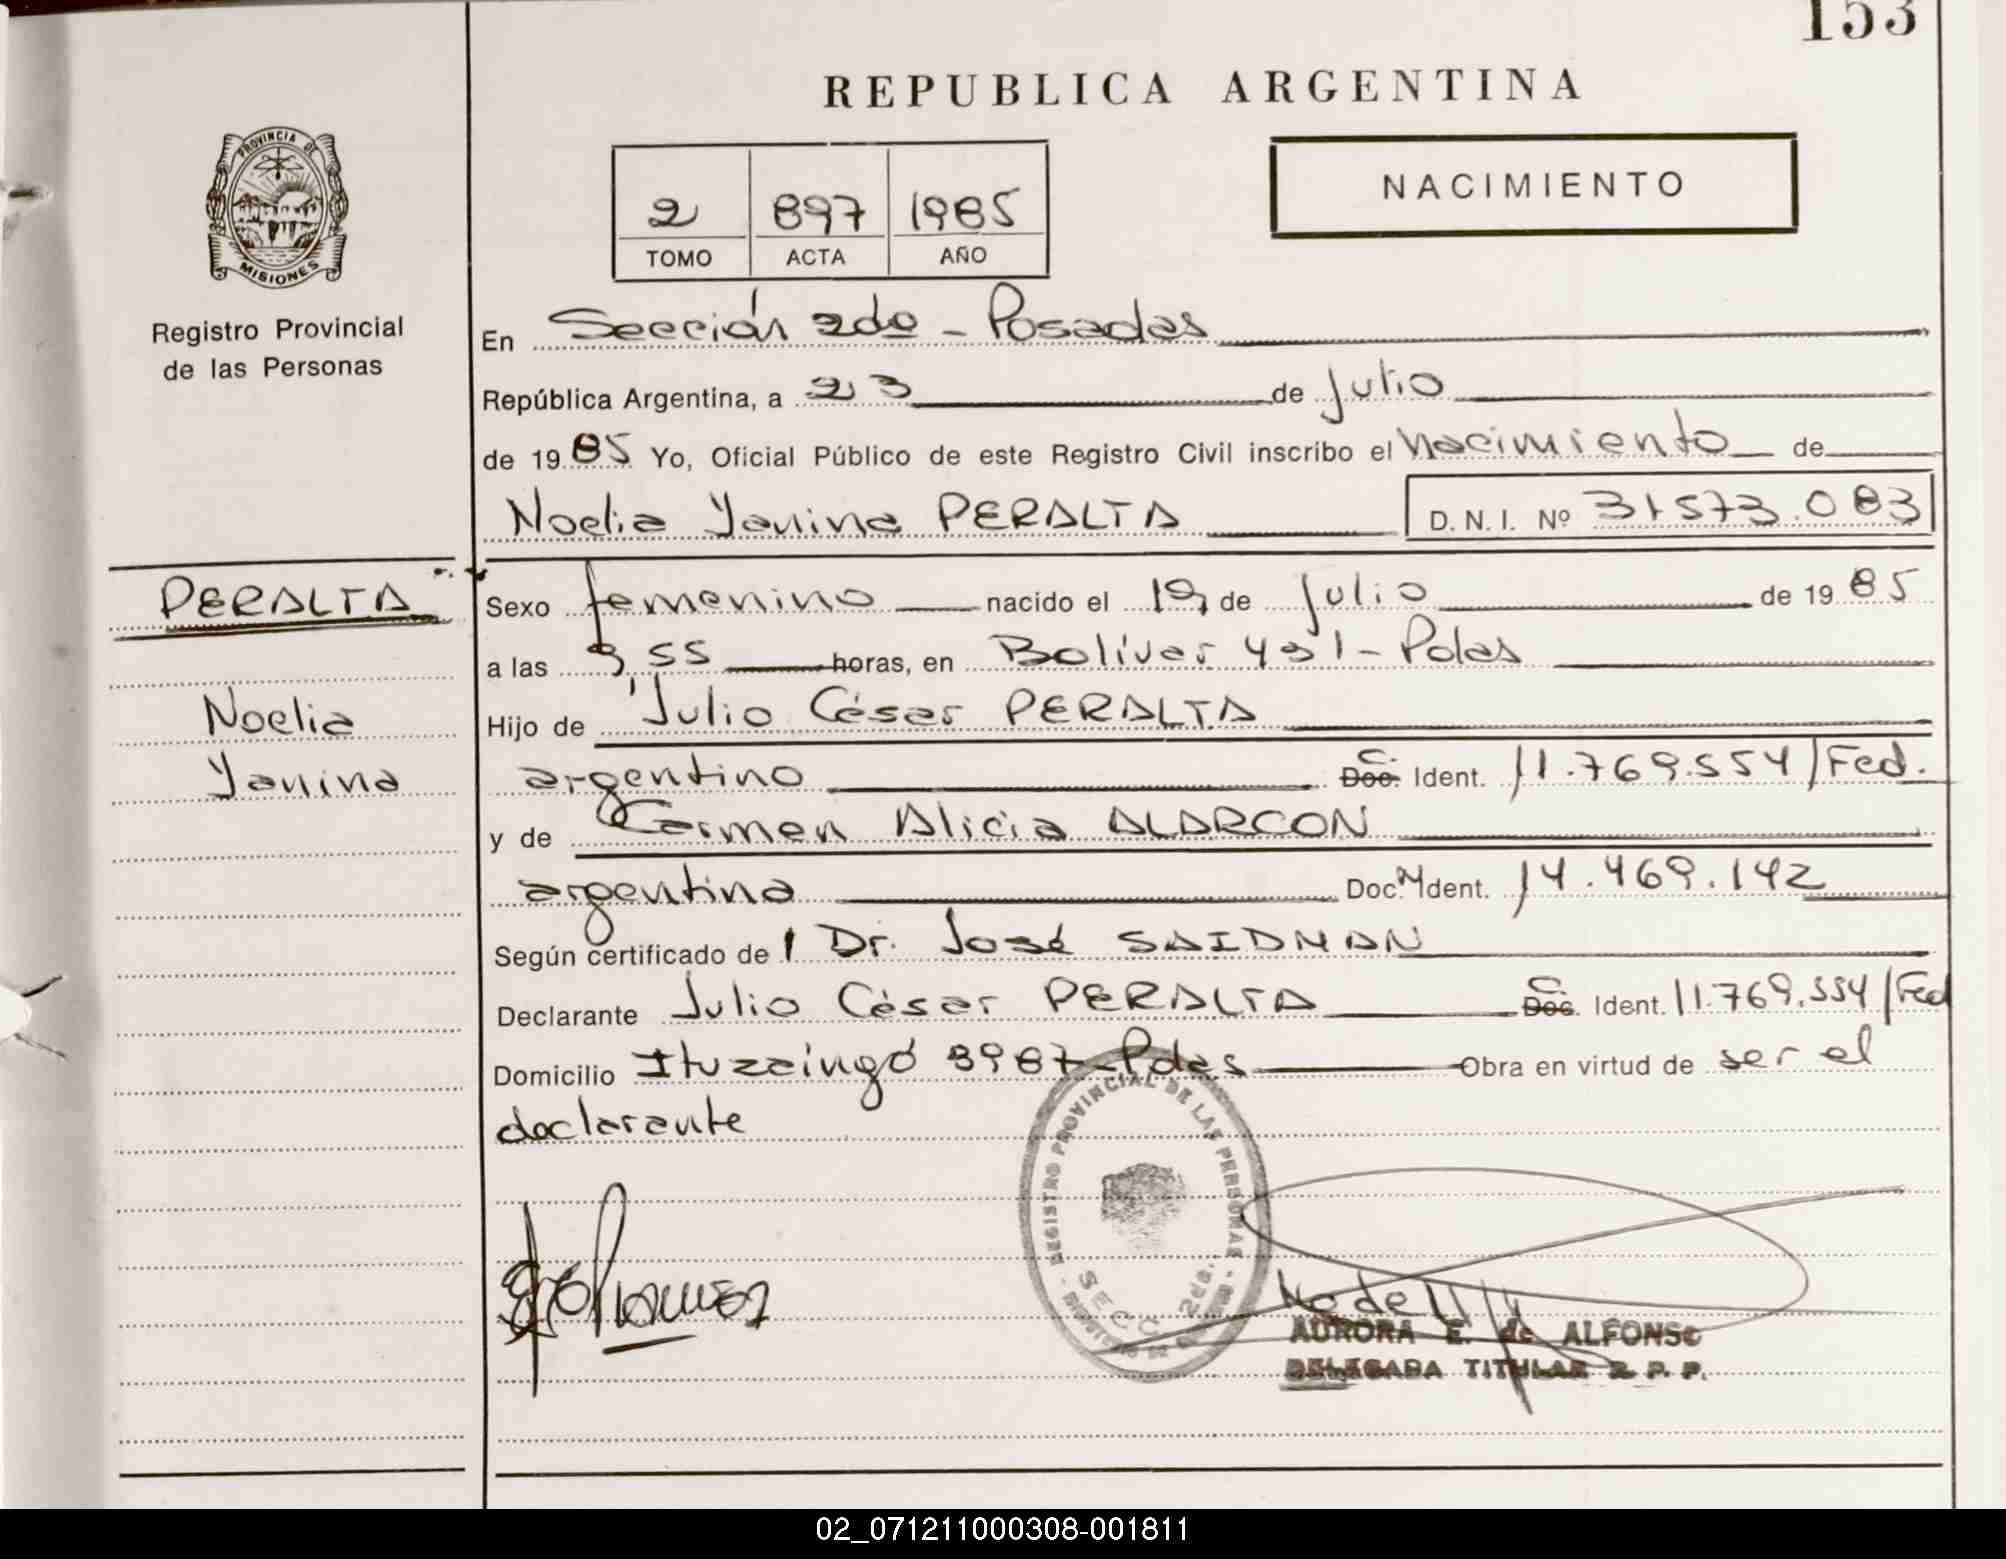 153
REPUBLICA ARGENTINA
PROVINCIA DE
MISIONES
Registro Provincial
de las Personas
2 897 1985
TOMO ACTA AÑO
NACIMIENTO
En Sección 2da - Posadas
República Argentina, a 23 de Julio
de 1985 Yo, Oficial Público de este Registro Civil inscribo el Nacimiento de
Noelia Yanina PERALTA D.N.I. Nº 31573.083
PERALTA
Noelia
Yanina
Sexo femenino nacido el 19 de Julio de 1985
a las 9,55 horas, en Bolívar 431 - Pdas
Hijo de Julio César PERALTA
argentino Doc. C. Ident. 11.769.554/Fed.
y de Carmen Alicia ALARCON
argentina Doc. N Ident. 14.469.142
Según certificado de 1 Dr. José SAIDMAN
Declarante Julio César PERALTA Doc. C. Ident. 11.769.554/Fed
Domicilio Ituzaingó 3987 - Pdas Obra en virtud de ser el
declarante
REGISTRO PROVINCIAL DE LAS PERSONAS
SECC 2da.
AURORA E. de ALFONSO
DELEGADA TITULAR R. P. P.
02_071211000308-001811